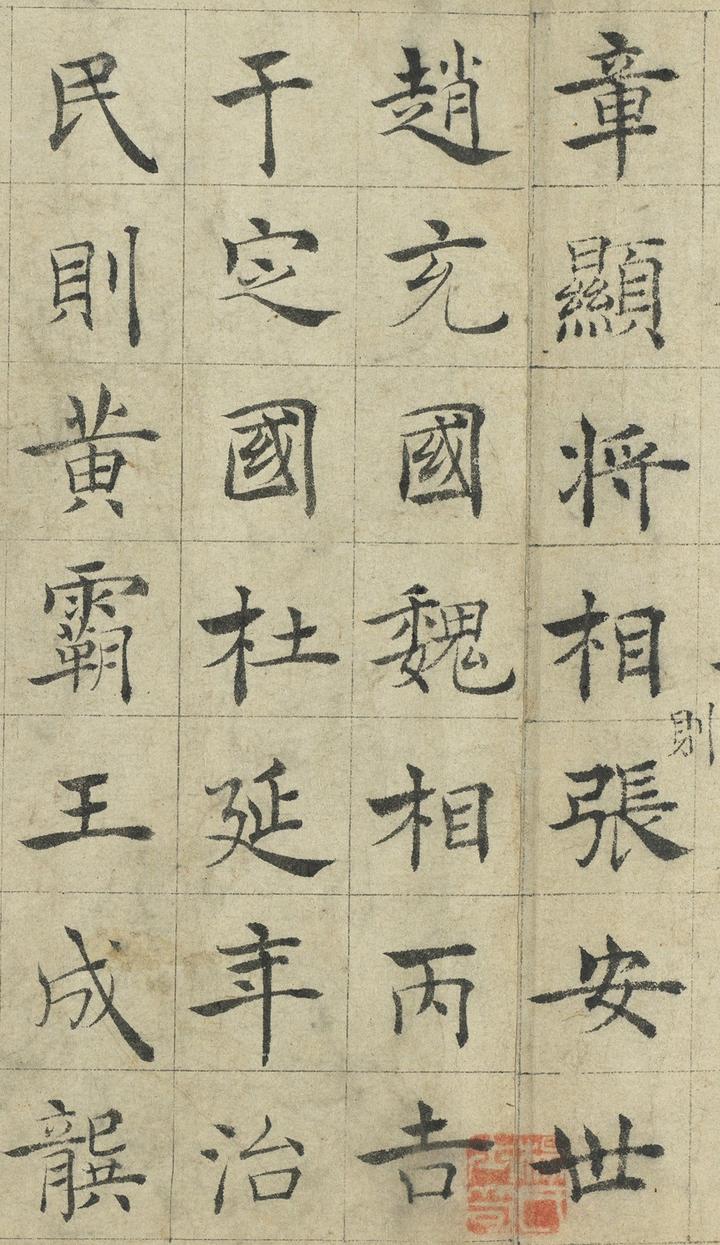 章顯將相張安世
趙充國魏相丙吉
于定國杜延年治
民則黄霸王成龔
則